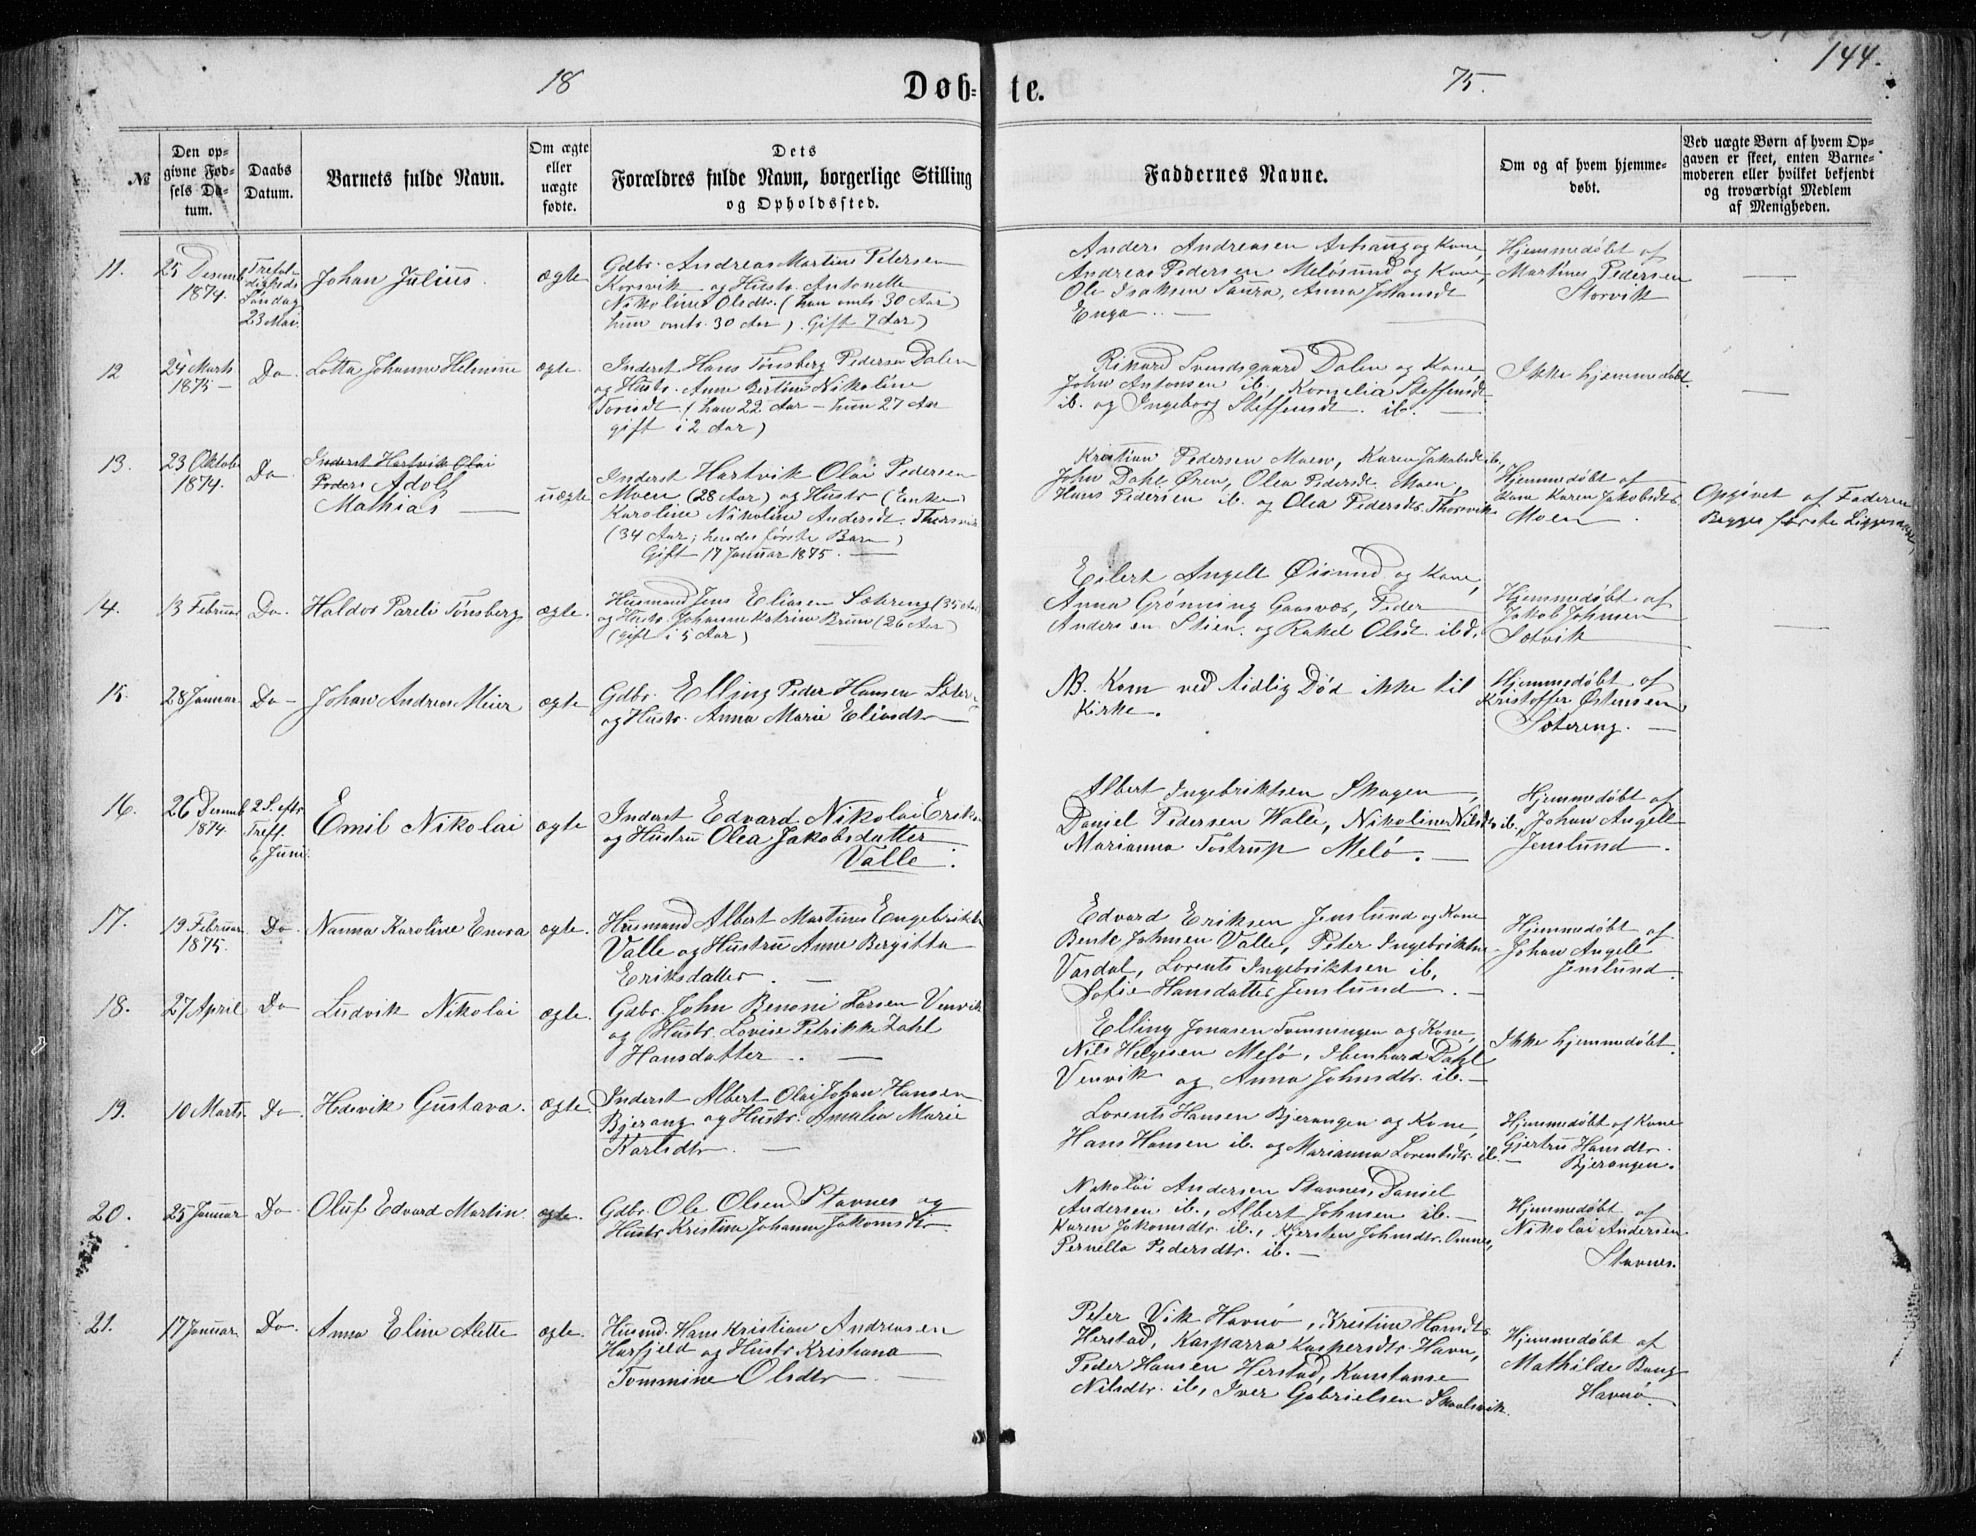 144.
18 75.
Døb- te.
№
Den op-
givne Fød-
sels Da-
tum.
Daabs
Datum.
Barnets fulde Navn.
Om ægte
eller
uægte
fødte.
Dets
Forældres fulde Navn, borgerlige Stilling
og Opholdssted.
Faddernes Navne.
Om og af hvem hjemme-
døbt.
Ved uægte Børn af hvem Op-
gaven er skeet, enten Barne-
moderen eller hvilket bekjendt
og troværdigt Medlem
af Menigheden.
11.
25 Desemb
1874.
Trefol-
digheds
Søndag
23 Mai.
Johan Julius.
ægte
Gdbr. Andreas Martin Petersen
Korsvik og Hustr. Antonette
Nikoline Olsdtr. (han omtr. 30 Aar)
hun omtr. 30 Aar). Gift 7 Aar)
Anders Andreasen og Kone,
Andreas Pedersen Meløsund og Kone,
Ole Isaksen Saura, Anna Johansdt
Enga
Hjemmedøbt af
Martines Pedersen
Storvik
12
24 Marts
1875 —
Do.
Lotta Johanna Helmine
ægte.
Inderst Hans Tønsberg Pedersen Dalen
og Hustr. Anne Bertine Nikoline
Torisdt. (han 22 Aar — hun 27 Aar
gift i 2 Aar)
Rikard Svendsgaard Dalen og Kone,
John Antonsen ib., Kornelia Steffensdt
ib. og Ingeborg Steffensdt. ib. —
Ikke hjemmedøbt.
13.
23 Oktob
1874.
Do
Inderst Hartvik Olai
Peders Adolf
Mathias —
uægte
Inderst Hartvik Olai Pedersen
Moen (28 Aar) og Hustr (Enke)
Karoline Nikoline Andersdt. Thorsvik
(34 Aar; hendes første Barn)
Gift 17 Januar 1875. —
Kristian Pedersen Moen, Karen Jakobsdt ib,
John Dahl Øren, Olea Pedersdt. Moen,
Hans Pedersen ib. og Olea Pedersdtr. Thorsvik
Hjemmedøbt af
Kone Karen Jakobsdtr.
Moen.
Opgivet af Faderen
Begges første Leiermaal.
14.
13 Februar
Do.
Haldor Pareli Tønsberg
ægte.
Husmand Jens Eliasen Sætreng (35 Aar)
og Hustr. Johanne Katrine Bruun (26 Aar)
(gift i 5 Aar)
Eilert Angell Øisund og Kone,
Anna Grønning Gaasvær, Peder
Andersen Stien. og Rakel Olsdt. ibd.
Hjemmedøbt af
Jakob Johnsen
Sotvik
15.
28 Januar.
Do —
Johan Andreas Meier
ægte
Gdbr. Elling Peder Hansen Sæter
og Hustr. Anna Marie Eliasdtr
NB. Kom ved tidlig Død ikke til
Kirke.
Hjemmedøbt af
Kristoffer Østensen
Sætering. —
16.
26 Desemb
1874
2 S. eftr
Treff.
6 Juni.
Emil Nikolai
ægte
Inderst Edvard Nikolai Eriks
og Hustru Olea Jakobsdatter
Valle.
Albert Ingebriktsen Skagen,
Daniel Pedersen Walle, Nikoline Nilsdtr ib.,
Marianna Tostrup Melø. —
Hjemmedøbt af
Johan Angell
Jenslund.
17.
19 Februar
1875.
Do
Nanna Karoline Enora
ægte.
Husmand Albert Martines Engebrikts
Valle og Hustru Anne Bergitta
Eriksdatter. —
Edvard Eriksen Jenslund og Kone
Bente Johnsen Valle, Peter Ingebriktsen
Vardal, Lorents Ingebriktsen ib.
Sofie Hansdatter Jenslund. —
Hjemmedøbt af
Johan Angell
Jenslund.
18.
27 April
Do
Ludvik Nikolai
ægte.
Gdbr. John Benoni Larsen Venvik
og Hustr. Lovise Petrikke Dahl
Hansdatter. —
Elling Jonasen Tomningen og Kone,
Nils Helgesen Melø, Ibenhard Dahl
Venvik og Anna Johnsdtr. ib. —
Ikke hjemmedøbt.
19.
10 Marts
Do.
Hedevik Gustava.
ægte.
Inderst Albert Olai Johan Hansen
Bjerang og Hustr. Amalia Marie
Karlsdtr. —
Lorents Hansen Bjerangen og Kone,
Hans Hansen ib. og Marianna Lorentsdtr. ib. —
Hjemmedøbt af Kone
Gjertru Hansdtr.
Bjerangen.
20.
25 Januar
Do
Oluf Edvard Martin.
ægte.
Gdbr. Ole Olsen Stavnes og
Hustr Kristina Johanna Jakomsdtr.
Nikolai Andersen Stavnes, Daniel
Andersen ib., Albert Johnsen ib. —
Karen Jakomsdtr. ib., Kjersten Johnsdtr. Omnes,
Pernella Pedersdtr. ib. —
Hjemmedøbt af
Nikolai Andersen
Stavnes.
21.
17 Januar
Do.
Anna Eline Alette
ægte.
Husmd. Hans Kristian Andreasen
Harfjeld og Hustr. Kristiana
Tommine Olsdtr. —
Peter Vik Havnø, Kristine Hansdtr
Herstad, Kasparra Kaspersdtr. Havn,
Peder Hansen Herstad, Konstanse
Nilsdtr. ib, Iver Gabrielsen Skaalsvik.
Hjemmedøbt af
Mathilde Bang
Havnø.